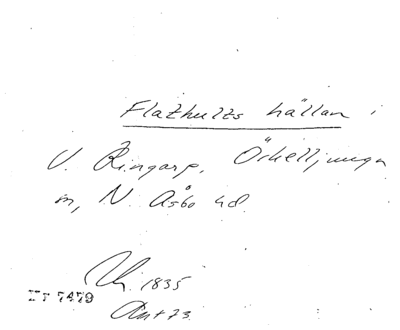 Flathults källan i
V. Ringarp, Örkelljunga
m, N. Åsbo hd.
1835
7479